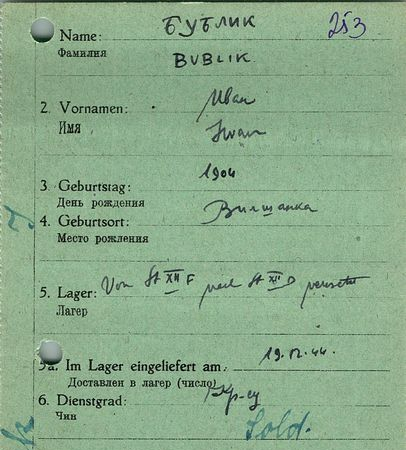 Name: БУБЛИК 253
Фамилия BUBLIK.
2. Vornamen: Иван
Имя Iwan
3. Geburtstag: 1904
День рождения
4. Geburtsort: Вилшанка
Место рождения
5. Lager: Von St XII F nach St XII D versetzt
Лагер
5a. Im Lager eingeliefert am: 19.12.44.
Доставлен в лагер (число)
6. Dienstgrad: Кр-ец
Чин Sold.